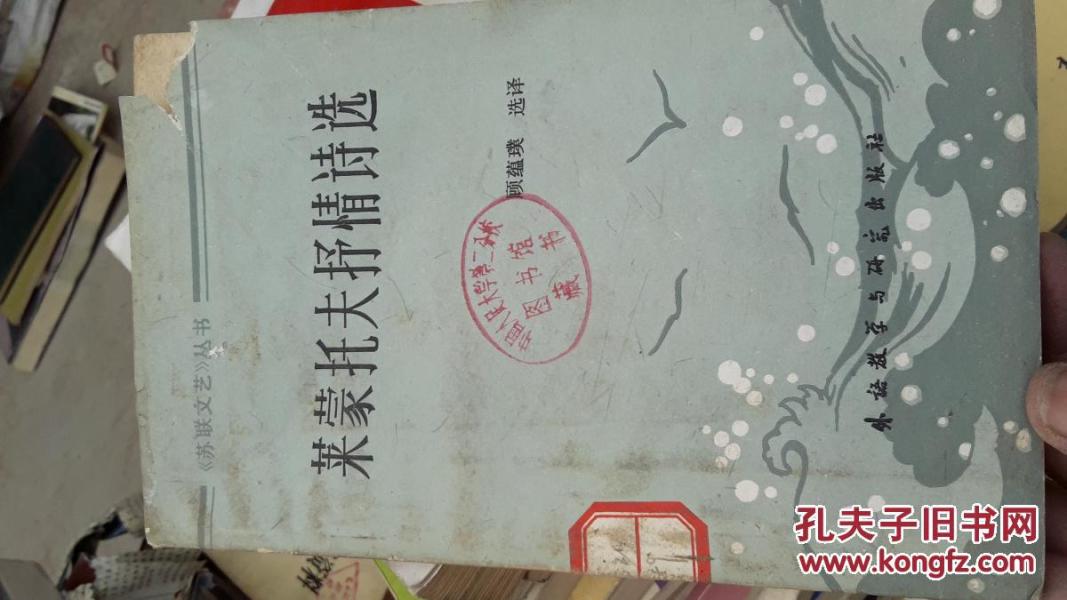 《苏联文艺》丛书
莱蒙托夫抒情诗选
顾蕴璞 选译
中国人民大学第二分校
图书馆
藏书
外语教学与研究出版社
孔夫子旧书网
www.kongfz.com